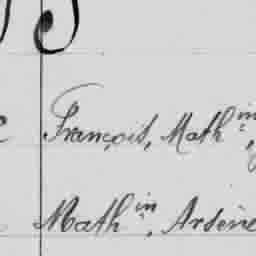 François, Math in,
Math in, Arsène